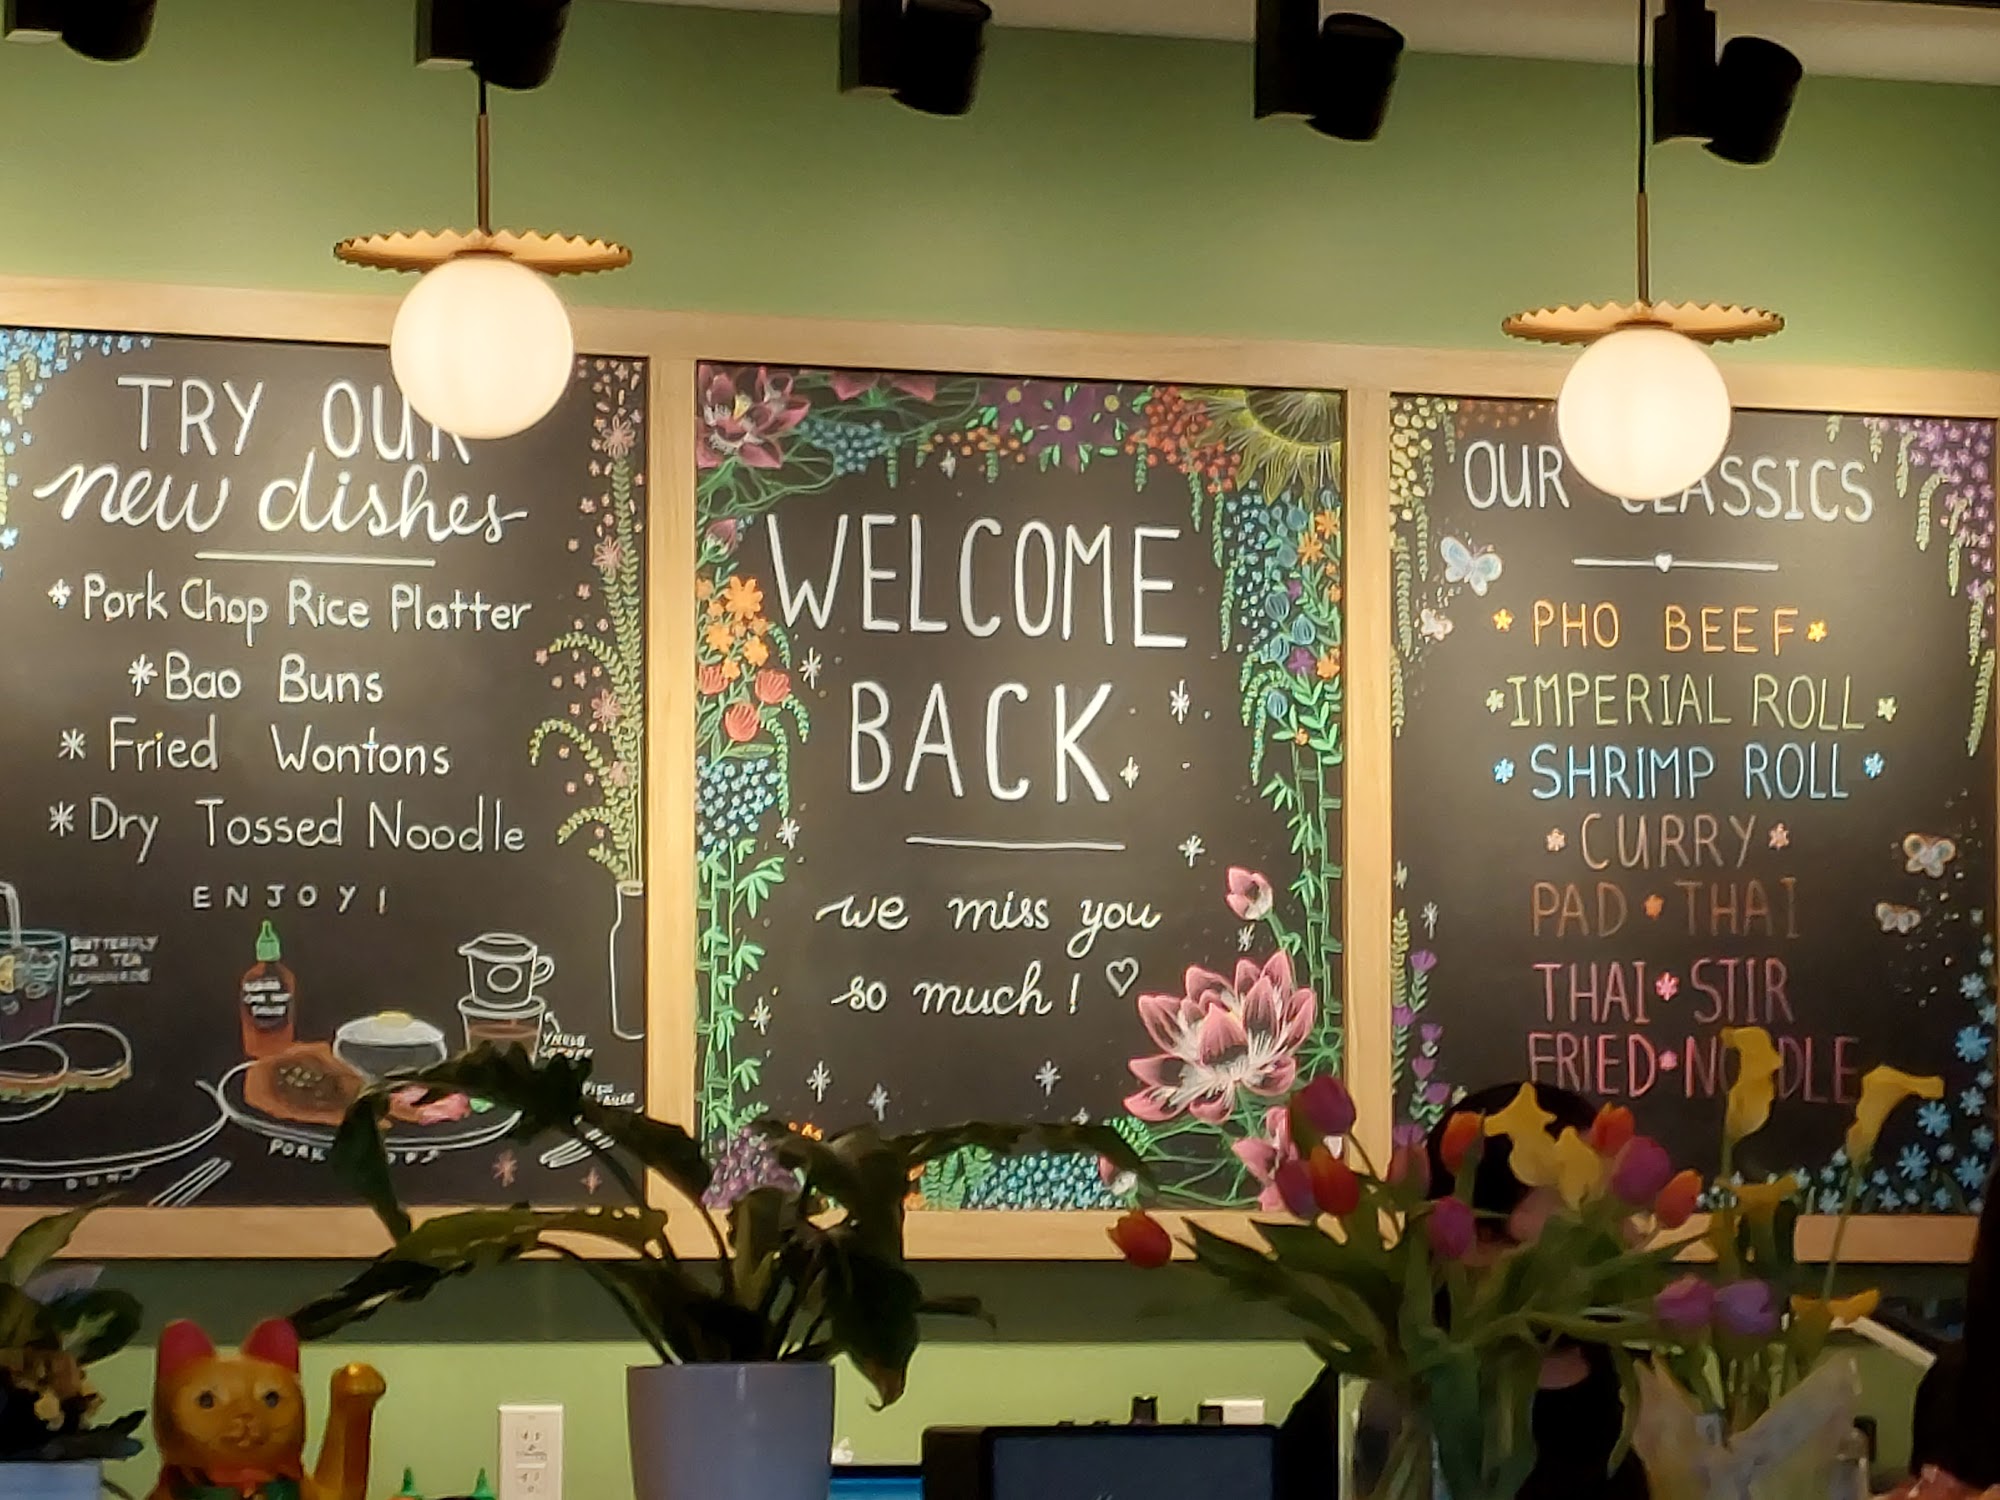 TRY OUR
new dishes
* Pork Chop Rice Platter
* Bao Buns
* Fried Wontons
* Dry Tossed Noodle
ENJOY!
BUTTERFLY
PEA TEA
LEMONADE
PORK
WELCOME
BACK
we miss you
so much! ♡
OUR CLASSICS
* PHO BEEF *
* IMPERIAL ROLL *
* SHRIMP ROLL *
* CURRY *
PAD * THAI
THAI * STIR
FRIED * NOODLE